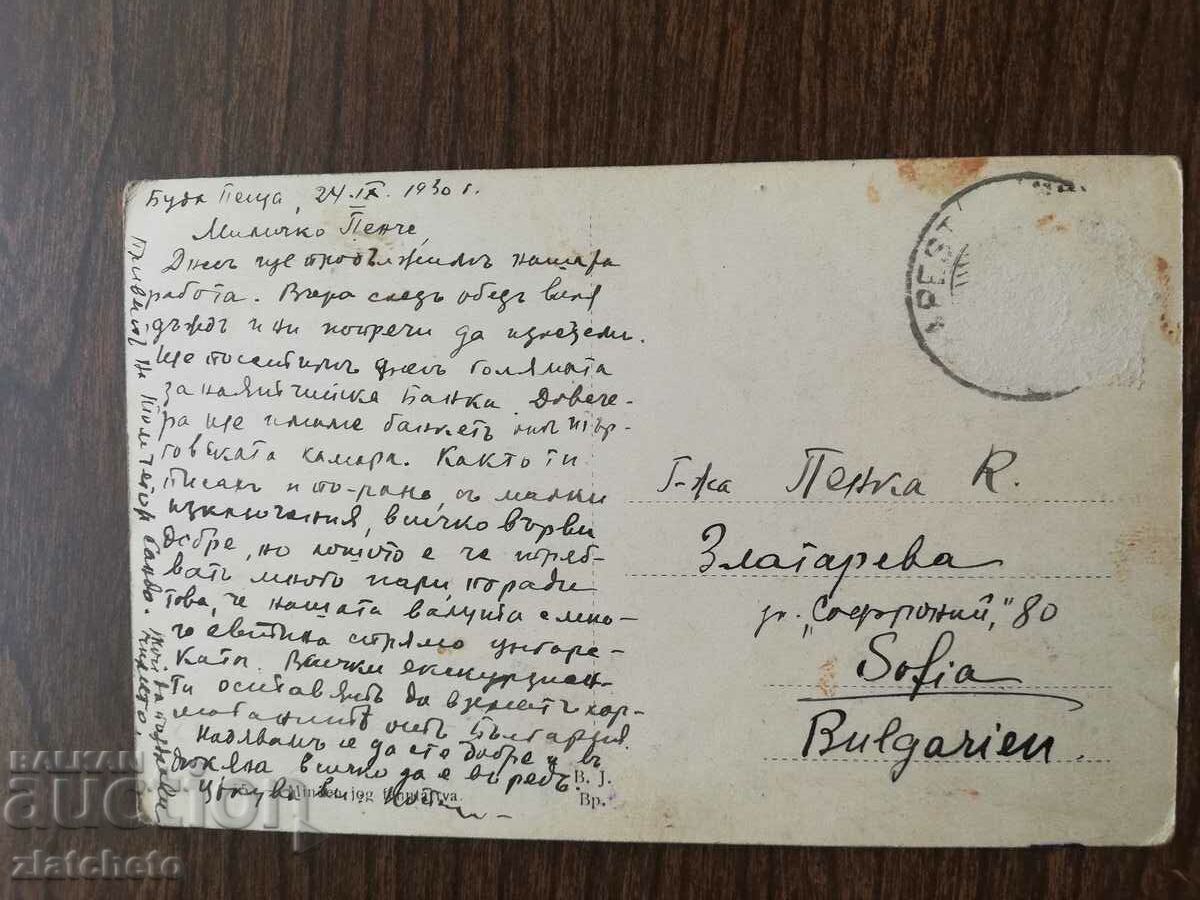 Буда Пеща, 24.IX. 1930 г.
Миличко Пенче,
Днесъ ще продължимъ нашата
работа. Вчера следъ обедъ валя
дъждъ и ни попречи да излеземъ.
Ще посетимъ днесъ голямата
занаятчийска банка. Довече-
ра ще имаме банкетъ отъ Тър-
говската камара. Както ти
писах и по-рано, съ малки
изключения, всичко върви
добре, но лошото е че трѣб-
ватъ много пари, поради
това, че нашата валута е мно-
го евтина спрямо унгарс-
ката. Всички екскурзиан-
ти оставятъ да взематъ
отъ България.
Надявамъ се да сте добре и въ
всичко да е въ редъ.
Целува ви
Поздравъ на
BPEST
Г-жа Пенка К.
Златарева
ул. „Софроний" 80
Sofia
Bulgarien
Minden jog fenntartva.
B. J.
Bp.
BALKAN
auction
zlatcheto